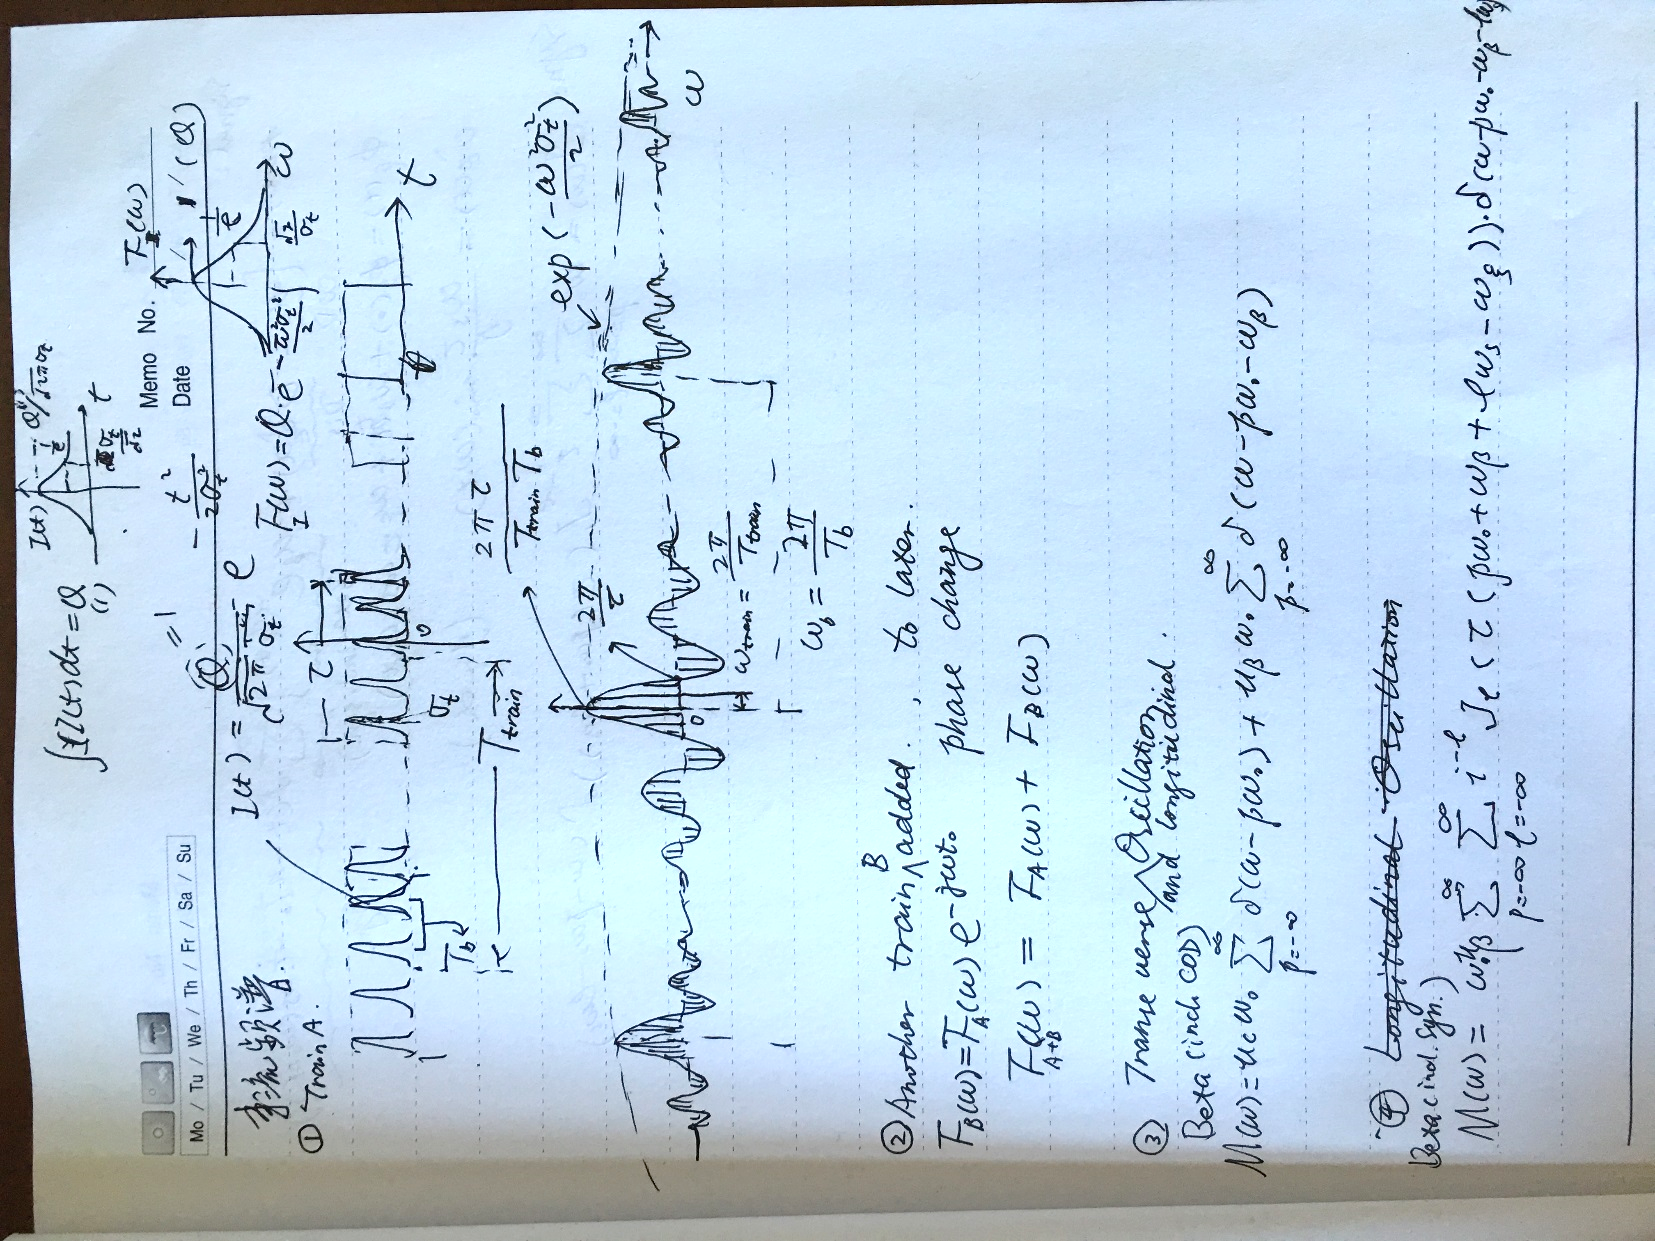 ∫I(t)dt = Q
(1)
I(t)
t
Memo No.
Date
Mo / Tu / We / Th / Fr / Sa / Su
F(ω)
1/e
√2/σt
ω
束流频谱.
I(t) = Q/(√2π σt) e^(-t²/2σt²)
=1
F_I(ω) = Q·e^(-ω²σt²/2)
① Train A.
τ
0
t
T_b
σt
T_train
2πτ/(T_train T_b)
exp(-ω²σt²/2)
2π/τ
0
ω
ω_train = 2π/T_train
ω_b = 2π/T_b
② Another train B added. , t₀ later.
F_B(ω) = F_A(ω) e^-jωt₀ phase change
F_A+B(ω) = F_A(ω) + F_B(ω)
③ Transverse Oscillation
and longitudinal.
Beta (incl. COD)
M(ω) = u_c ω₀ ∑_{p=-∞}^{∞} δ(ω-pω₀) + u_β ω₀ ∑_{p=-∞}^{∞} δ(ω-pω₀-ω_β)
④ Longitudinal Oscillation
Beta (incl. Syn.)
M(ω) = ω₀u_β ∑_{p=-∞}^{∞} ∑_{l=-∞}^{∞} i^-l J_l (τ(pω₀+ω_β+lω_s-ω_ξ))·δ(ω-pω₀-ω_β-lω